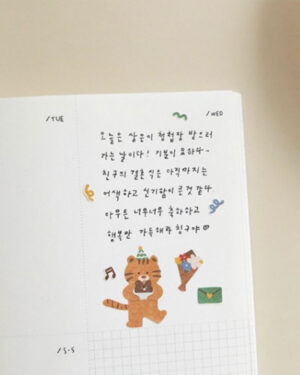 /TUE
/WED
오늘은 상은이 청첩장 받으러
가는 날이다! 기분이 묘하다~
친구의 결혼식은 아직까지는
어색하고 신기함이 큰것 같다.
아무튼 너무너무 축하하고
행복만 가득해라 친구야♡
/S·S